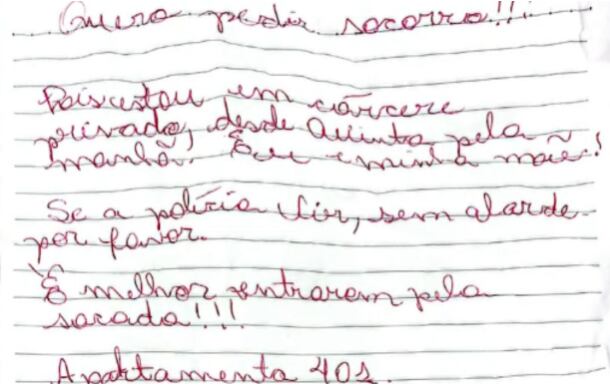 Quero pedir socorro!!!
Pois estou em cárcere
privado, desde Quinta pela
manhã. Eu e minha mãe!
Se a polícia vir, sem alarde
por favor.
É melhor entrarem pela
sacada!!!
Apartamento 401